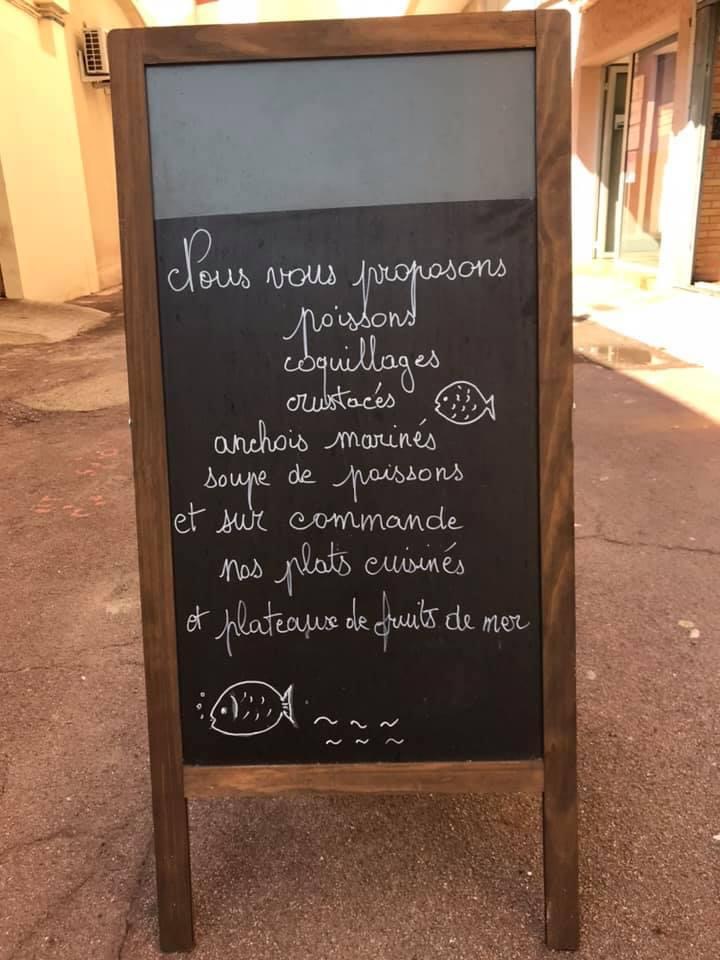 Nous vous proposons
poissons
coquillages
crustacés
anchois marinés
soupe de poissons
et sur commande
nos plats cuisinés
et plateaux de fruits de mer